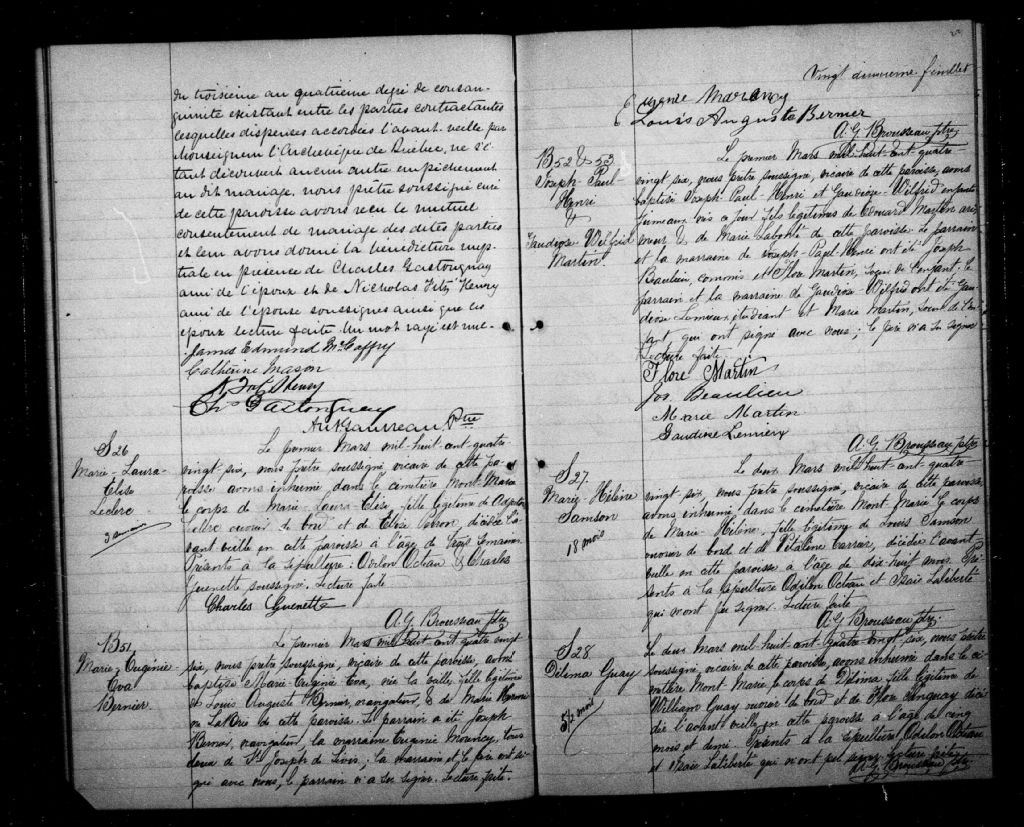 du troisième au quatrième degré de consan-
guinité existant entre les parties contractantes
lesquelles dispenses accordées l'avant-veille par
Monseigneur l'Archevêque de Québec, ne s'é
tant découvert aucun autre empêchement
au dit mariage, nous prêtre soussigné curé
de cette paroisse avons reçu le mutuel
consentement de mariage des dites parties
et leur avons donné la bénédiction nup-
tiale en présence de Charles Gastonguay
ami de l'époux et de Nicholas Fitz Henry
ami de l'épouse soussignés ainsi que les
époux lecture faite. Un mot rayé est nul.
James Edmund McCaffry
Catherine Mason
N Fitz Henry
Chs Gastonguay
Ant Gauvreau Ptre
S26
Marie-Laura-
Elise
Leclerc
Le premier Mars mil-huit-cent-quatre-
vingt-six, nous prêtre soussigné, vicaire de cette pa-
roisse avons inhumé dans le cimetière Mont-Marie
le corps de Marie-Laura-Elise, fille légitime de
ouvrier de bord et de Elise décédée l'a-
vant-veille en cette paroisse à l'âge de semaines
Présents à la sépulture: Odilon Octeau & Charles
Guenette soussigné. Lecture faite
Charles Guenette
A. G. Brousseau ptre
B51
Marie-Eugénie
Eva
Bernier
Le premier Mars mil huit-cent-quatre vingt
six, nous prêtre soussigné, vicaire de cette paroisse, avons
baptisé Marie-Eugénie Eva, née la veille, fille légitime
de Louis Auguste Bernier, navigateur, & de Marie
de cette paroisse. Le parrain a été Joseph
Bernier, navigateur, la marraine Eugénie tous
deux de St Joseph de Lévis; la marraine et le père ont si-
gné avec nous, le parrain n'a su signer. Lecture faite.
Vingt deuxième feuillet
Eugénie
Louis Auguste Bernier
A. G. Brousseau ptre
B52 & 53
Joseph-Paul-
Henri
&
Gaudiose-Wilfrid
Martin.
Le premier Mars mil-huit-cent-quatre-
vingt six, nous prêtre soussigné, vicaire de cette paroisse, avons
baptisé Joseph-Paul-Henri et Gaudiose-Wilfrid enfants
jumeaux nés ce jour fils légitimes de Edouard Martin
& de Marie de cette paroisse. Le parrain
et la marraine de Joseph-Paul-Henri ont été Joseph
Beaulieu, commis et Flore Martin, soeur de l'enfant; le
parrain et la marraine de Gaudiose-Wilfrid ont été Gau-
diose Lemieux, étudiant et Marie Martin, soeur de l'en-
fant qui ont signé avec nous; le père n'a su signer
Lecture faite
Flore Martin
Jos. Beaulieu
Marie Martin
Gaudiose Lemieux
A. G. Brousseau ptre
S27.
Marie-Hélène
Samson
18 mois
Le deux Mars mil-huit-cent-quatre-
vingt six, nous prêtre soussigné, vicaire de cette paroisse,
avons inhumé dans le cimetière Mont Marie le corps
de Marie Hélène, fille légitime de Louis Samson
ouvrier de bord et de Carrier, décédée l'avant-
veille en cette paroisse à l'âge de dix-huit mois. Pré-
sents à la sépulture Odilon Octeau et Isaïe Laliberté
qui n'ont pu signer. Lecture faite
A. G. Brousseau ptre.
S28
Délima Guay
5½ mois
Le deux Mars mil-huit-cent-quatre vingt six, nous prêtre
soussigné, vicaire de cette paroisse, avons inhumé dans le ci-
metière Mont Marie le corps de Délima fille légitime de
William Guay ouvrier de bord et de Flore décé-
dée l'avant veille en cette paroisse à l'âge de cinq
mois et demi. Présents à la sépulture Odilon Octeau
et Isaïe Laliberté qui n'ont pu signer. Lecture faite.
A. G. Brousseau ptre